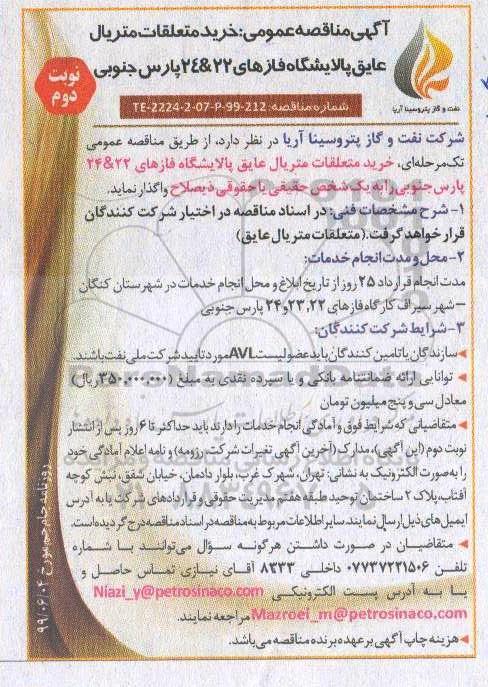 آگهی مناقصه عمومی: خرید متعلقات متریال
عایق پالایشگاه فازهای ۲۲&۲۴ پارس جنوبی
نوبت
دوم
نفت و گاز پتروسینا آریا
شماره مناقصه: TE-2224-2-07-P-99-212
شرکت نفت و گاز پتروسینا آریا در نظر دارد، از طریق مناقصه عمومی
تک مرحله‌ای، خرید متعلقات متریال عایق پالایشگاه فازهای ۲۲&۲۴
پارس جنوبی را به یک شخص حقیقی یا حقوقی ذیصلاح واگذار نماید.
۱- شرح مشخصات فنی: در اسناد مناقصه در اختیار شرکت کنندگان
قرار خواهد گرفت. (متعلقات متریال عایق)
۲- محل و مدت انجام خدمات:
مدت انجام قرارداد ۲۵ روز از تاریخ ابلاغ و محل انجام خدمات در شهرستان کنگان
– شهر سیراف کارگاه فازهای ۲۲، ۲۳ و ۲۴ پارس جنوبی
۳- شرایط شرکت کنندگان:
◄ سازندگان یا تامین کنندگان باید عضو لیست AVL مورد تایید شرکت ملی نفت باشند.
◄ توانایی ارائه ضمانتنامه بانکی و یا سپرده نقدی به مبلغ (۳۵۰,۰۰۰,۰۰۰ ریال)
معادل سی و پنج میلیون تومان
◄ متقاضیانی که شرایط فوق و آمادگی انجام خدمات را دارند باید حداکثر تا ۶ روز پس از انتشار
نوبت دوم (این آگهی)، مدارک (آخرین آگهی تغییرات شرکت، رزومه) و نامه اعلام آمادگی خود
را به صورت الکترونیک به نشانی: تهران، شهرک غرب، بلوار دادمان، خیابان شفق، نبش کوچه
آفتاب، پلاک ۲ ساختمان توحید طبقه هفتم مدیریت حقوقی و قراردادهای شرکت یا به آدرس
ایمیل‌های ذیل ارسال نمایند. سایر اطلاعات مربوط به مناقصه در اسناد مناقصه درج گردیده است.
◄ متقاضیان در صورت داشتن هرگونه سؤال می‌توانند با شماره
تلفن ۰۷۷۳۷۲۲۱۵۰۶ داخلی ۸۳۳۳ آقای نیازی تماس حاصل و
یا به آدرس پست الکترونیکی Niazi_y@petrosinaco.com
Mazroei_m@petrosinaco.com مراجعه نمایند.
◄ هزینه چاپ آگهی بر عهده برنده مناقصه می‌باشد.
روزنامه جام جم مورخ ۹۹/۰۶/۰۴